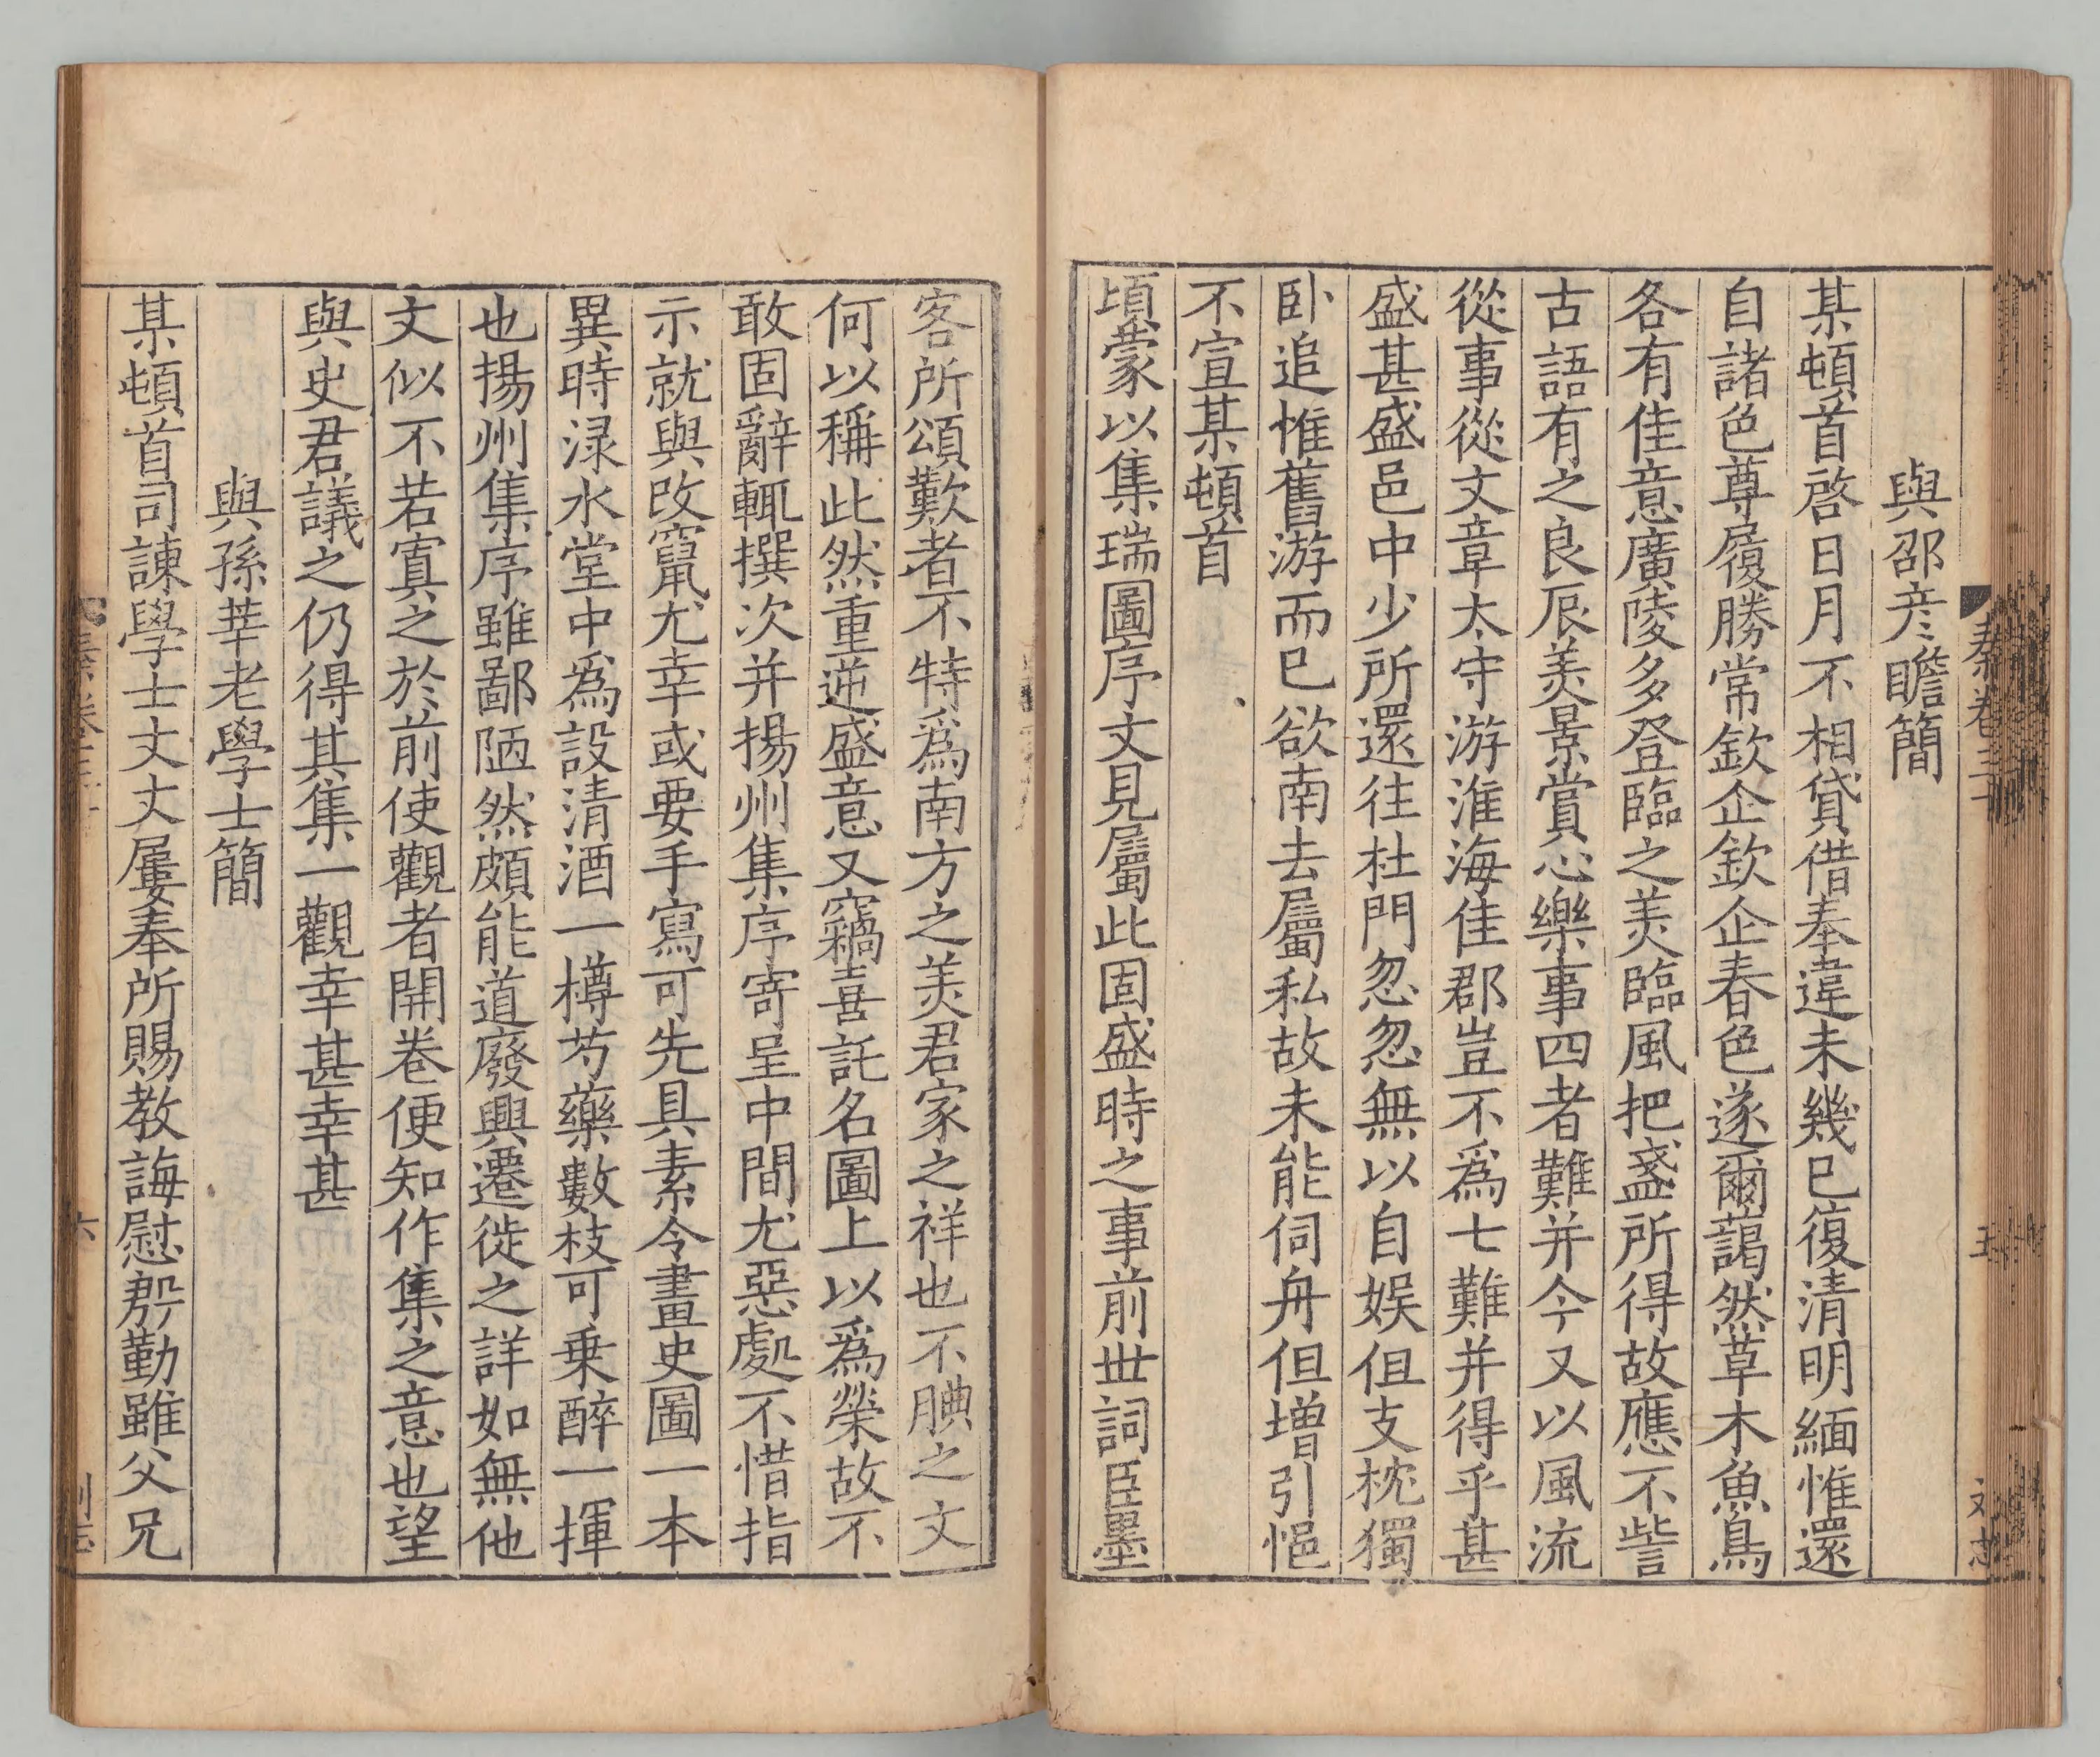 秦卷三十
五
文志
與邵彦瞻簡
某頓首啓日月不相貸借奉違未幾已復清明緬惟還
自諸色尊履勝常欽企欽企春色遂爾藹然草木魚鳥
各有佳意廣陵多登臨之美臨風把盞所得故應不訾
古語有之良辰美景賞心樂事四者難并今又以風流
從事從文章太守游淮海佳郡豈不爲七難并得乎甚
盛甚盛邑中少所還往杜門忽忽無以自娱但支枕獨
卧追惟舊游而已欲南去屬私故未能伺舟但增引悒
不宣某頓首
頃蒙以集瑞圖序文見屬此固盛時之事前世詞臣墨
客所頌歎者不特爲南方之美君家之祥也不腆之文
何以稱此然重逆盛意又竊喜託名圖上以爲榮故不
敢固辭輒撰次并揚州集序寄呈中間尤惡處不惜指
示就與改竄尤幸或要手寫可先具素令畫史圖一本
異時渌水堂中爲設清酒一樽芍藥數枝可乗醉一揮
也揚州集序雖鄙陋然頗能道廢興遷徙之詳如無他
文似不若寘之於前使觀者開卷便知作集之意也望
與史君議之仍得其集一觀幸甚幸甚
與孫莘老學士簡
某頓首司諫學士丈丈屢奉所賜教誨慰懃勤雖父兄
六